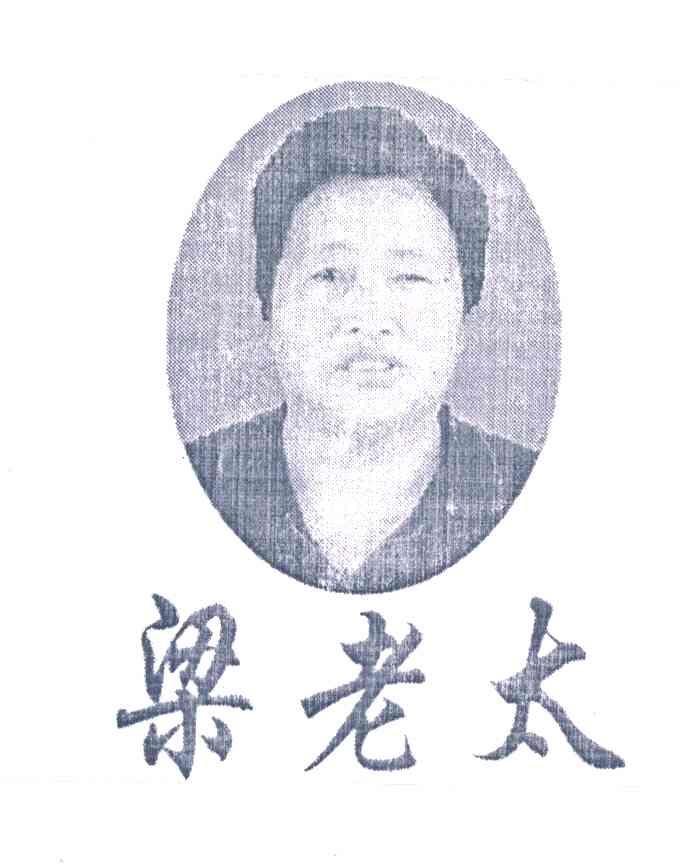 梁老太